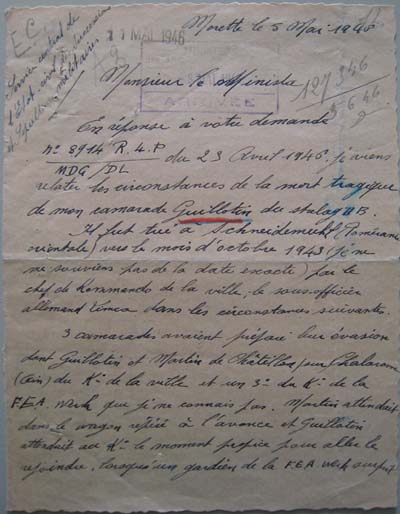 Morette le 5 Mai 1946
E.C.
11 MAI 1946
Service central de
l'Etat-civil des successions
et sépultures militaires
Monsieur le Ministre
127 346
ARRIVÉE
En réponse à votre demande
n° 8914 R.L.P
MDG/DL
du 23 Avril 1946, je viens
relater les circonstances de la mort tragique
de mon camarade Guillotin du stalag II B.
Il fut tué à Schneidemühl (Poméranie
orientale) vers le mois d'octobre 1943 (je ne
me souviens pas de la date exacte) par le
chef de Kommando de la ville, le sous-officier
allemand dans les circonstances suivantes.
3 camarades avaient préparé leur évasion
dont Guillotin et Martin de Châtillon/sur Chalaronne
(Ain) du Ko de la ville et un 3e du Ko de la
F.E.A. Werk que je ne connais pas. Martin attendait
dans le wagon repéré à l'avance et Guillotin
attendait au Ko le moment propice pour aller le
rejoindre, lorsqu'un gardien de la F.E.A. Werk surprit